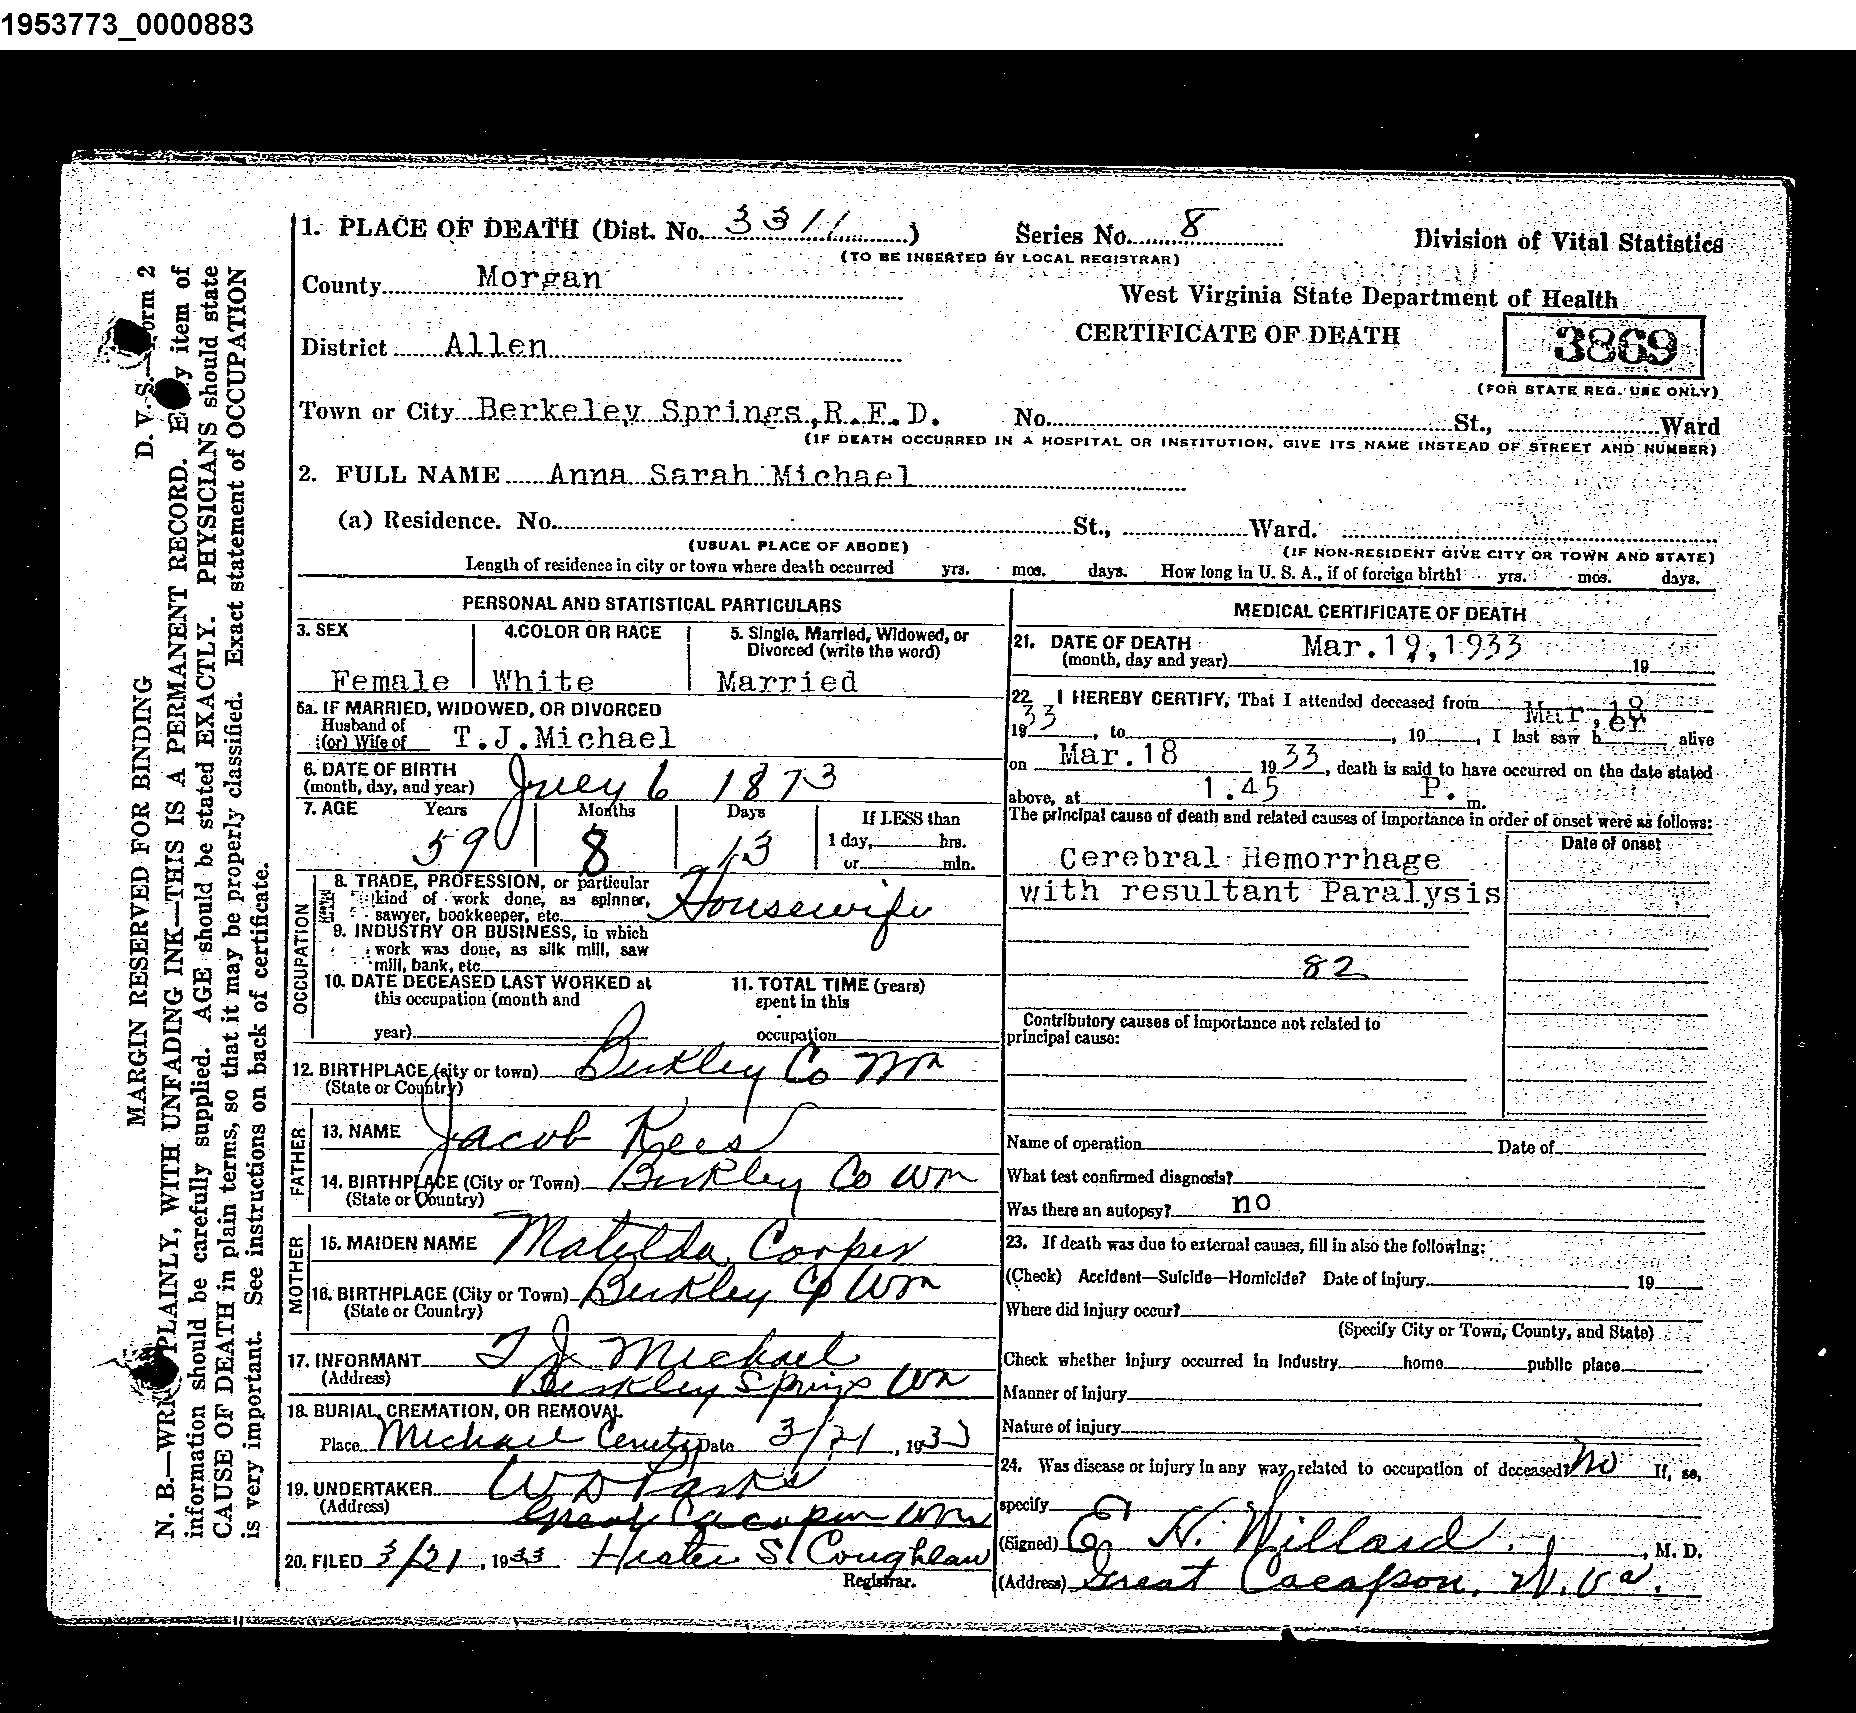 1953773_0000883
1. PLACE OF DEATH (Dist. No. 3311) Series No. 8 Division of Vital Statistics
(TO BE INSERTED BY LOCAL REGISTRAR)
County Morgan
West Virginia State Department of Health
CERTIFICATE OF DEATH
District Allen
3869
(FOR STATE REG. USE ONLY)
Town or City Berkeley Springs, R.F.D. No. St., Ward
(IF DEATH OCCURRED IN A HOSPITAL OR INSTITUTION, GIVE ITS NAME INSTEAD OF STREET AND NUMBER)
2. FULL NAME Anna Sarah Michael
(a) Residence. No. St., Ward.
(USUAL PLACE OF ABODE) (IF NON-RESIDENT GIVE CITY OR TOWN AND STATE)
Length of residence in city or town where death occurred yrs. mos. days. How long in U. S. A., if of foreign birth? yrs. mos. days.
PERSONAL AND STATISTICAL PARTICULARS
3. SEX 4. COLOR OR RACE 5. Single, Married, Widowed, or
Divorced (write the word)
Female White Married
5a. IF MARRIED, WIDOWED, OR DIVORCED
Husband of
(or) Wife of T.J.Michael
6. DATE OF BIRTH
(month, day, and year) July 6 1873
7. AGE Years Months Days If LESS than
1 day, hrs.
or min.
59 8 13
OCCUPATION
8. TRADE, PROFESSION, or particular
kind of work done, as spinner,
sawyer, bookkeeper, etc. Housewife
9. INDUSTRY OR BUSINESS, in which
work was done, as silk mill, saw
mill, bank, etc.
10. DATE DECEASED LAST WORKED at
this occupation (month and
year)
11. TOTAL TIME (years)
spent in this
occupation
12. BIRTHPLACE (city or town) Berkley Co
(State or Country)
FATHER
13. NAME Jacob Rees
14. BIRTHPLACE (City or Town) Berkley Co
(State or Country)
MOTHER
15. MAIDEN NAME Matilda Cooper
16. BIRTHPLACE (City or Town) Berkley Co
(State or Country)
17. INFORMANT T J Michael
(Address) Berkley Springs
18. BURIAL, CREMATION, OR REMOVAL
Place Michael Date 3/21, 1933
19. UNDERTAKER W D Parks
(Address) Great Cacapon
20. FILED 3/21, 1933 Hester S Coughlan
Registrar.
MEDICAL CERTIFICATE OF DEATH
21. DATE OF DEATH
(month, day and year) Mar.19,1933 19
22. I HEREBY CERTIFY, That I attended deceased from Mar,18
1933, to , 19 , I last saw her alive
on Mar.18 1933, death is said to have occurred on the date stated
above, at 1.45 P. m.
The principal cause of death and related causes of importance in order of onset were as follows:
Date of onset
Cerebral Hemorrhage
with resultant Paralysis
82
Contributory causes of importance not related to
principal cause:
Name of operation Date of
What test confirmed diagnosis?
Was there an autopsy? no
23. If death was due to external causes, fill in also the following:
(Check) Accident—Suicide—Homicide? Date of injury 19
Where did injury occur?
(Specify City or Town, County, and State)
Check whether injury occurred in Industry home public place
Manner of Injury
Nature of injury
24. Was disease or injury in any way related to occupation of deceased? No If, so,
specify
(Signed) E. N. Willard. , M. D.
(Address) Great Cacapon, W.Va.
MARGIN RESERVED FOR BINDING D. V. S.
N. B.—PLAINLY, WITH UNFADING INK—THIS IS A PERMANENT RECORD. item of
information should be carefully supplied. AGE should be stated EXACTLY. PHYSICIANS should state
CAUSE OF DEATH in plain terms, so that it may be properly classified. Exact statement of OCCUPATION
is very important. See instructions on back of certificate.